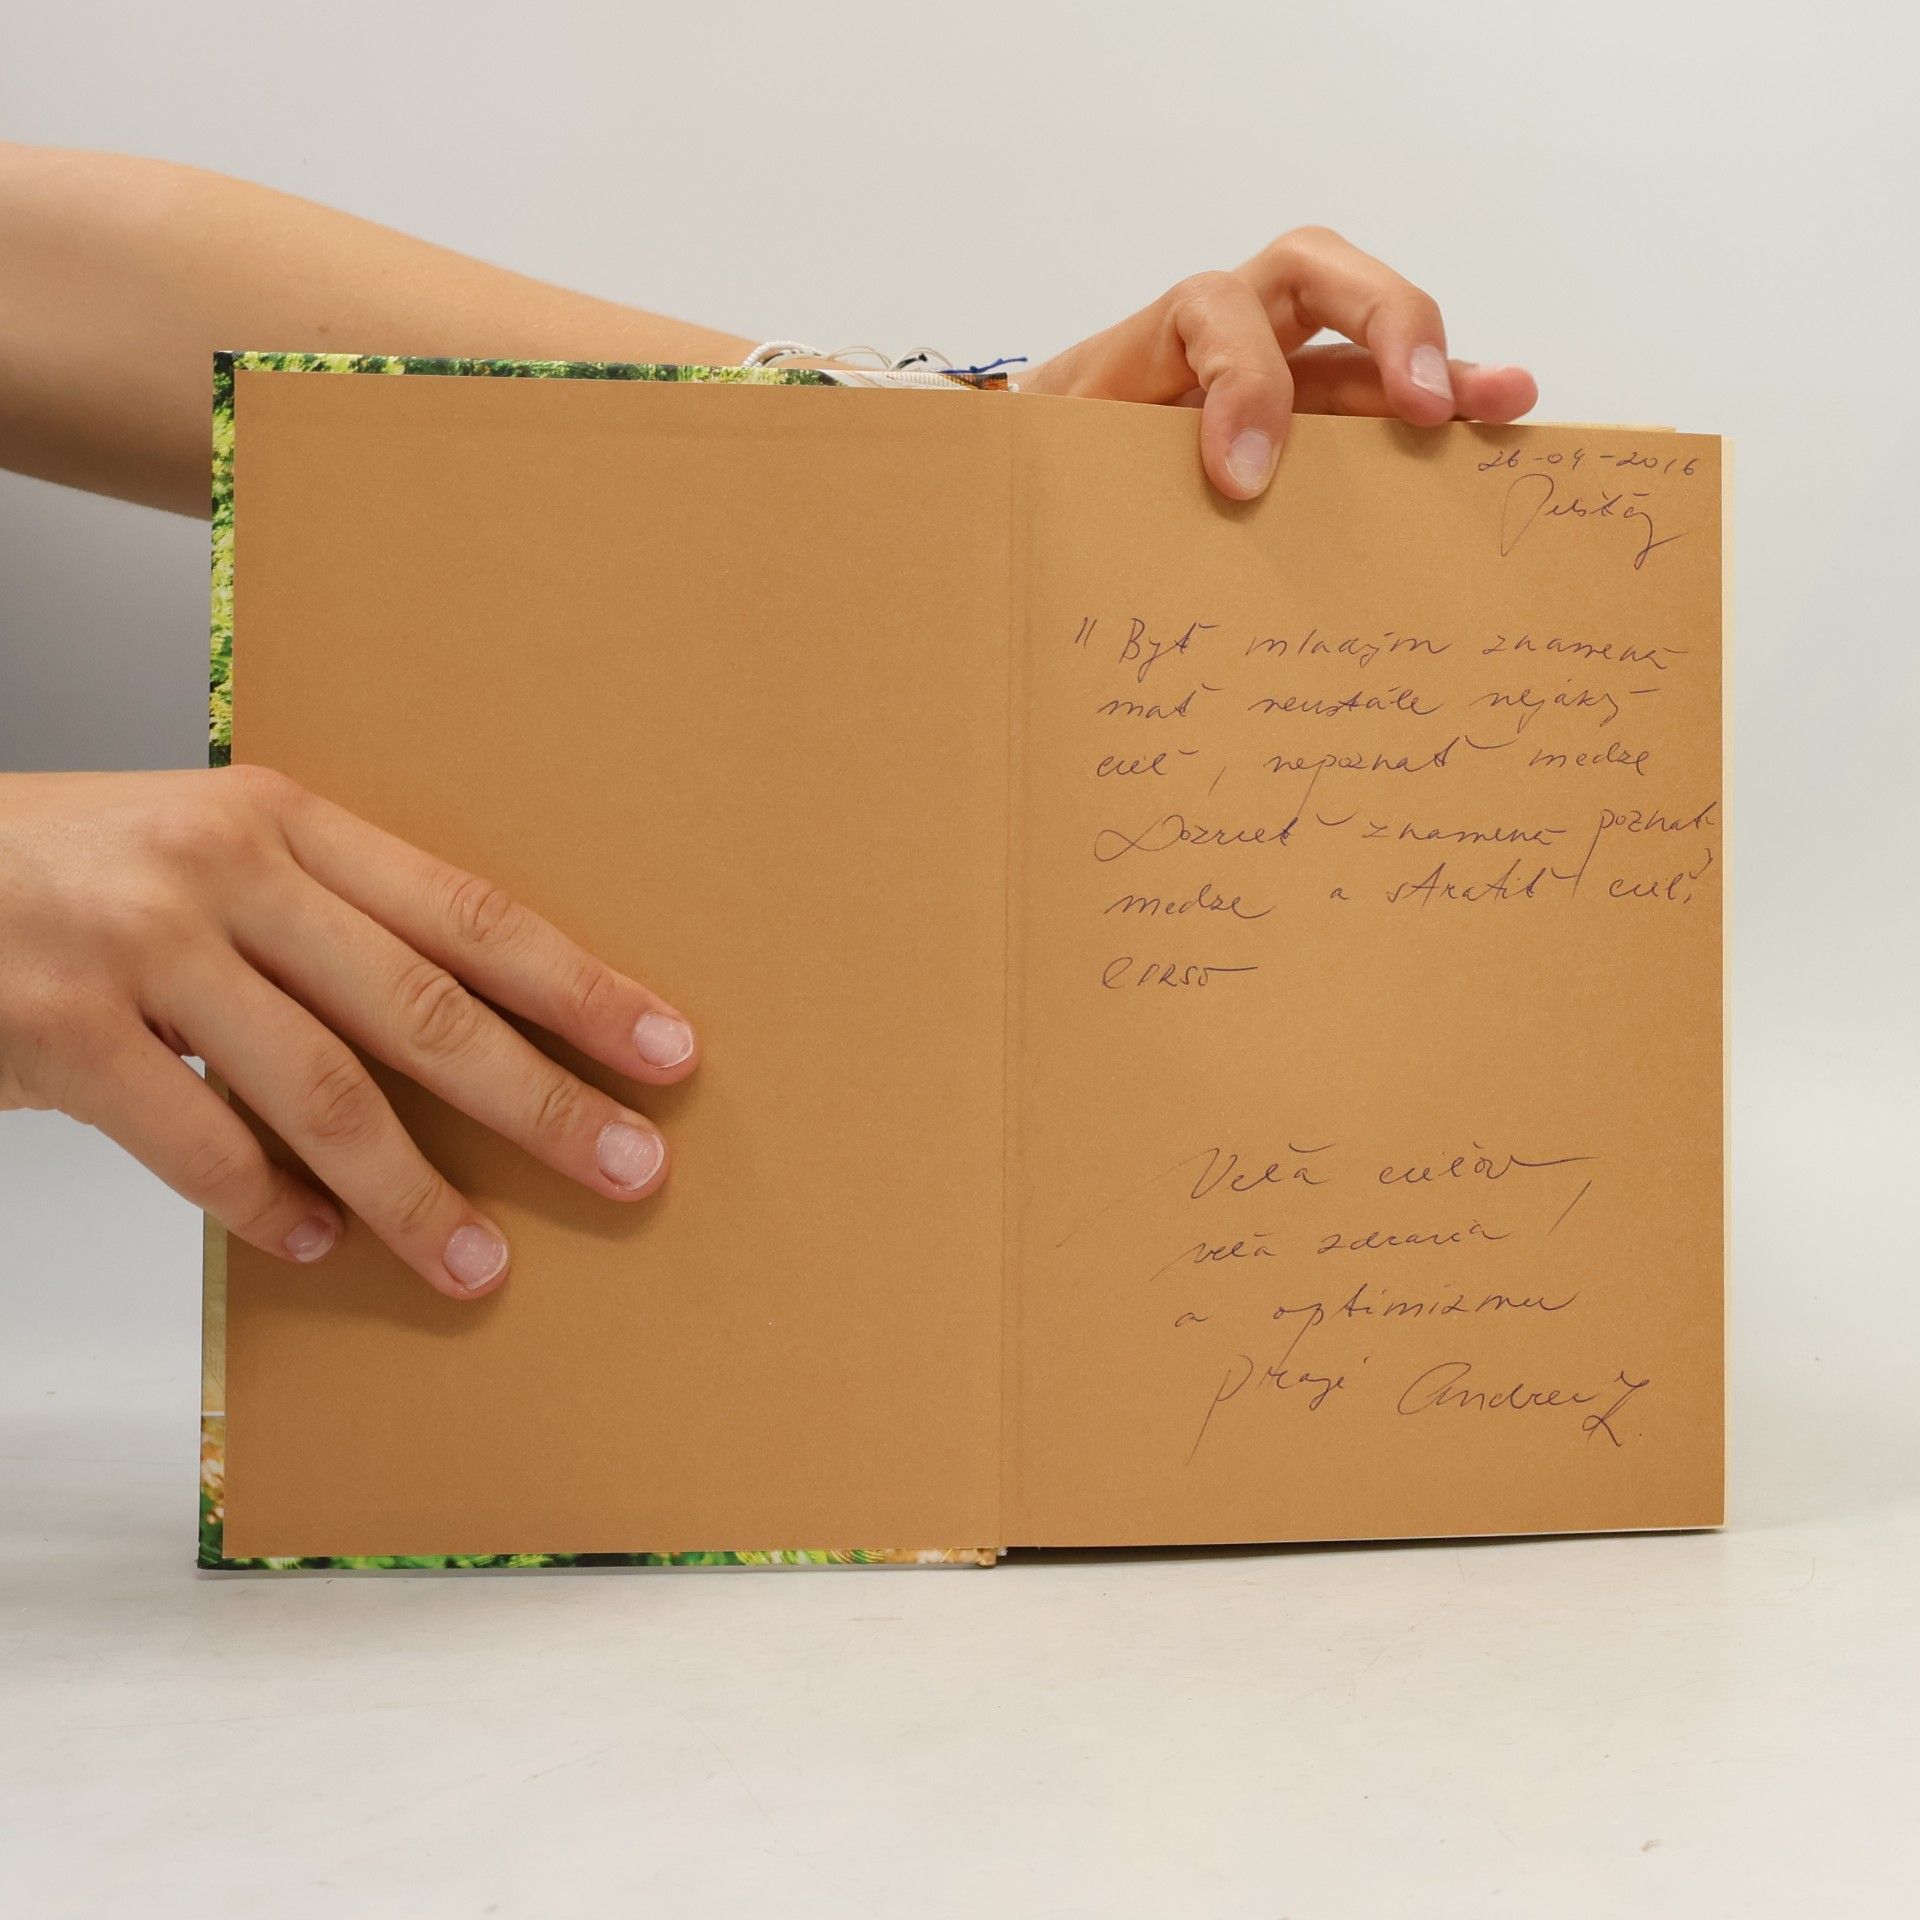 26-04-2016
"Byť mladým znamená
mať neustále nejaký
cieľ, nepoznať medze
Dozrieť znamená poznať
medze a stratiť cieľ."
Corso
Veľa cieľov,
veľa zdravia
a optimizmu
Praje Andrea Z.